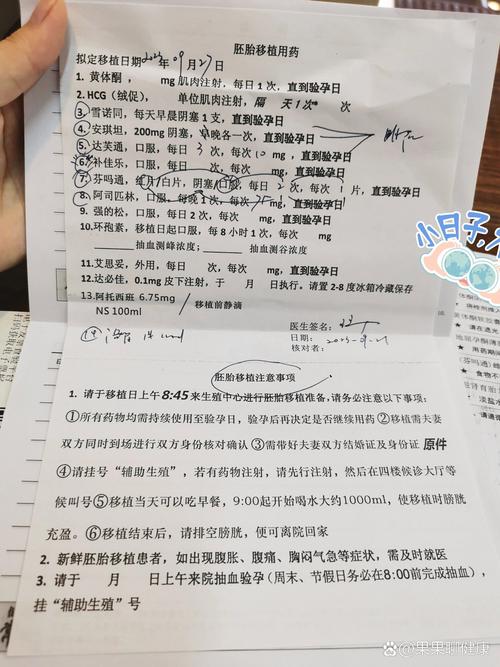 胚胎移植用药
拟定移植日期2023年09月27日
1. 黄体酮， mg 肌肉注射，每日 1 次，直到验孕日
2. HCG (绒促)， 单位肌肉注射，隔 天 1 次 次
③ 雪诺同，每天早晨阴塞 1 支，直到验孕日
④ 安琪坦，200mg 阴塞，早晚各一次，直到验孕日
⑤ 达芙通，口服，每日 3 次，每次 10 mg，直到验孕日
⑥ 补佳乐，口服，每日 次，每次 mg，直到验孕日
⑦ 芬吗通，红片/白片，阴塞/口服，每日 2 次，每次 1 片，直到验孕日
⑧ 阿司匹林，口服，每晚 1 次，每次 75 mg，直到验孕日
9. 强的松，口服，每日 2 次，每次 mg，直到验孕日
10. 环孢素，移植日起口服，每 8 小时 1 次，每次 mg
抽血测峰浓度； 抽血测谷浓度
11. 艾思妥，外用，每日 次，每次 mg，直到验孕日
12. 达必佳，0.1mg 皮下注射，于 月 日执行。请置 2-8 度冰箱冷藏保存
13. 阿托西班 6.75mg / 移植前静滴
NS 100ml
医生签名：
⑭
日期： 2023-9-21
核对者：
胚胎移植注意事项
1. 请于移植日上午 8:45 来生殖中心进行胚胎移植准备，请务必注意以下事项：
①所有药物均需持续使用至验孕日，验孕后再决定是否继续用药②移植需夫妻
双方同时到场进行双方身份核对确认③需带好夫妻双方结婚证及身份证原件
④请挂号“辅助生殖”，若有药物注射，请先行注射，然后在四楼候诊大厅等
候叫号⑤移植当天可以吃早餐，9:00起开始喝水大约1000ml，使移植时膀胱
充盈。⑥移植结束后，请排空膀胱，便可离院回家
2. 新鲜胚胎移植患者，如出现腹胀、腹痛、胸闷气急等症状，需及时就医
3. 请于 月 日上午来院抽血验孕(周末、节假日务必在8:00前完成抽血)，
挂“辅助生殖”号
小日子
食物不
淡盐水
果果聊健康